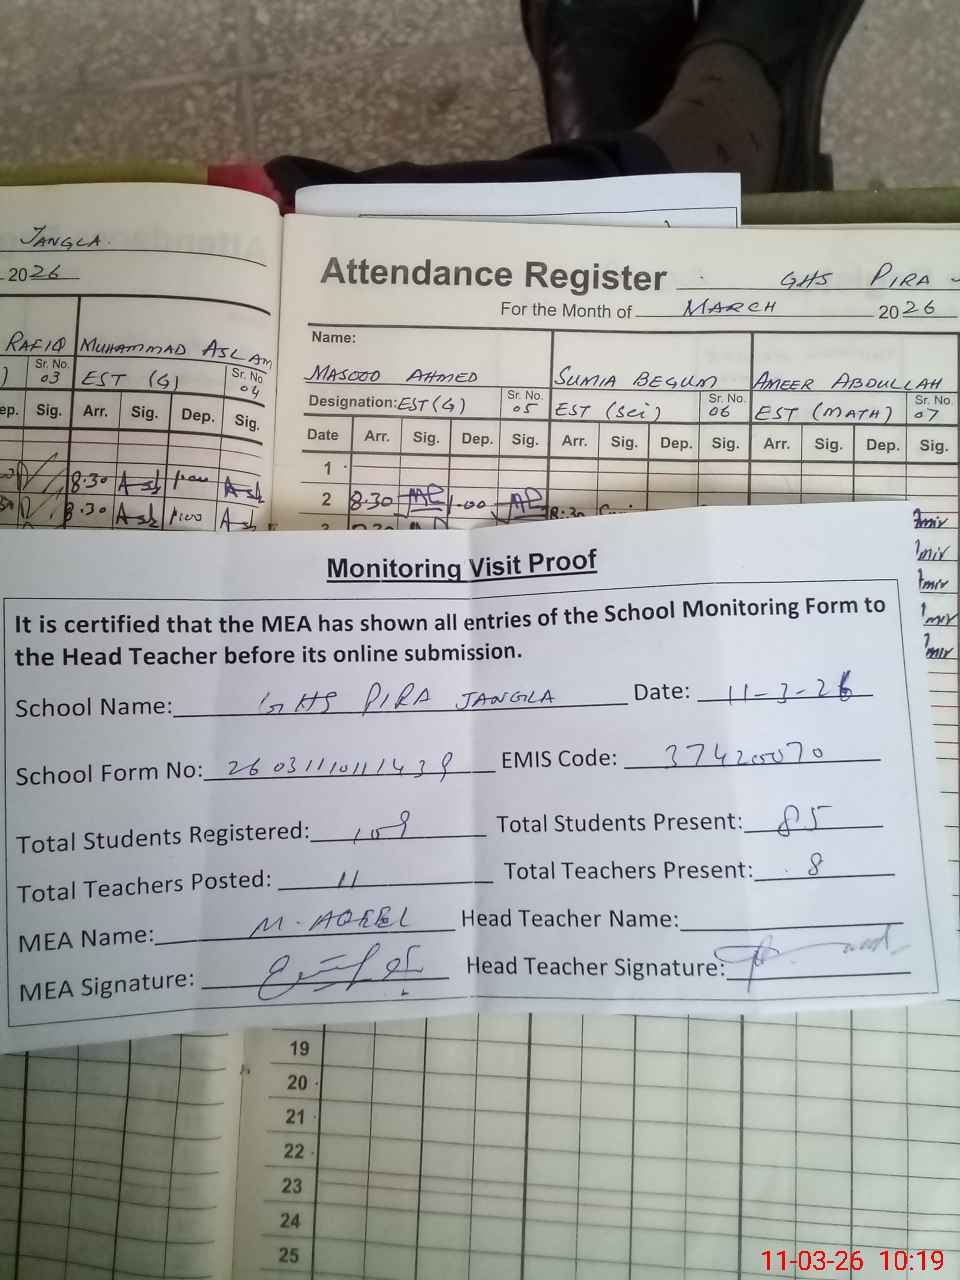 JANGLA.
2026
RAFIQ MUHAMMAD ASLAM
Sr. No. 03 EST (G) Sr. No. 04
ep. Sig. Arr. Sig. Dep. Sig.
8.30
8.30
Attendance Register GHS PIRA
For the Month of MARCH 2026
Name:
MASOOD AHMED SUMIA BEGUM AMEER ABDULLAH
Designation: EST (G) Sr. No. 05 EST (Sci) Sr. No. 06 EST (MATH) Sr. No. 07
Date Arr. Sig. Dep. Sig. Arr. Sig. Dep. Sig. Arr. Sig. Dep. Sig.
1
2 8.30 1.00 8.30
Monitoring Visit Proof
It is certified that the MEA has shown all entries of the School Monitoring Form to
the Head Teacher before its online submission.
School Name: GHS PIRA JANGLA Date: 11-3-26
School Form No: EMIS Code: 37420070
Total Students Registered: 109 Total Students Present: 85
Total Teachers Posted: 11 Total Teachers Present: 8
MEA Name: M. AQEEL Head Teacher Name:
MEA Signature: Head Teacher Signature:
19
20
21
22
23
24
25
11-03-26 10:19